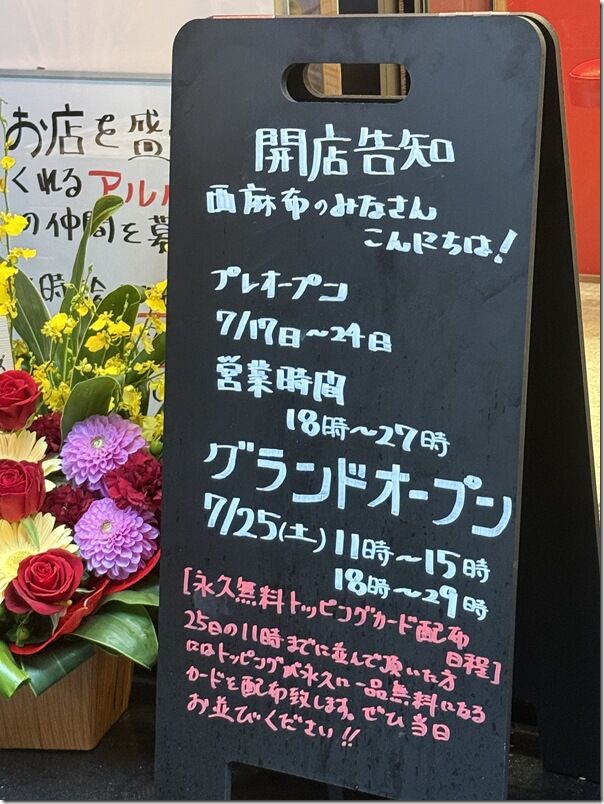 お店を盛
くれるアル
の仲間を募
時給
開店告知
西麻布のみなさん
こんにちは!
プレオープン
7/17日～24日
営業時間
18時～27時
グランドオープン
7/25(土)11時～15時
18時～29時
[永久無料トッピングカード配布
日程]
25日の11時までに並んで頂いた方
にはトッピングが永久に一品無料になる
カードを配布致します。ぜひ当日
お並びください!!